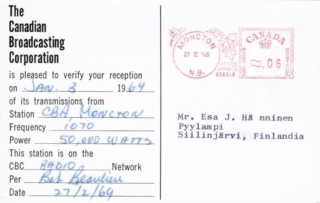 The
Canadian
Broadcasting
Corporation
is pleased to verify your reception
on JAN. 3 1969
of its transmissions from
Station CBA, MONCTON
Frequency 1070
Power 50,000 WATTS
This station is on the
CBC RADIO Network
Per Bob Beaulieu
Date 27/2/69
MONCTON
N.B.
CANADA
06
Mr. Esa J. Hä nninen
Pyylampi
Siilinjärvi, Finlandia